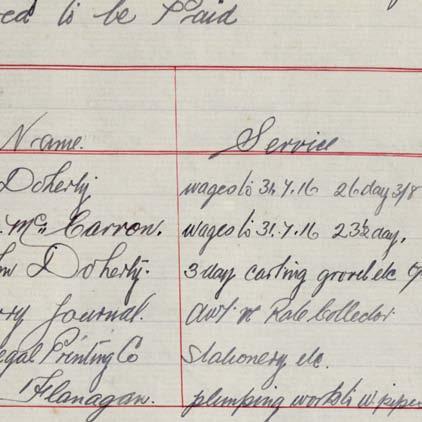 ed to be Paid
Name. Service
Doherty wages to 31.7.16 26 day 3/8
Mc Carron. wages to 31.7.16 23½ day.
Doherty. 3 day carting gravel etc
Journal. advt re Rate Collector
egal Printing Co Stationery etc.
Flanagan. plumping work